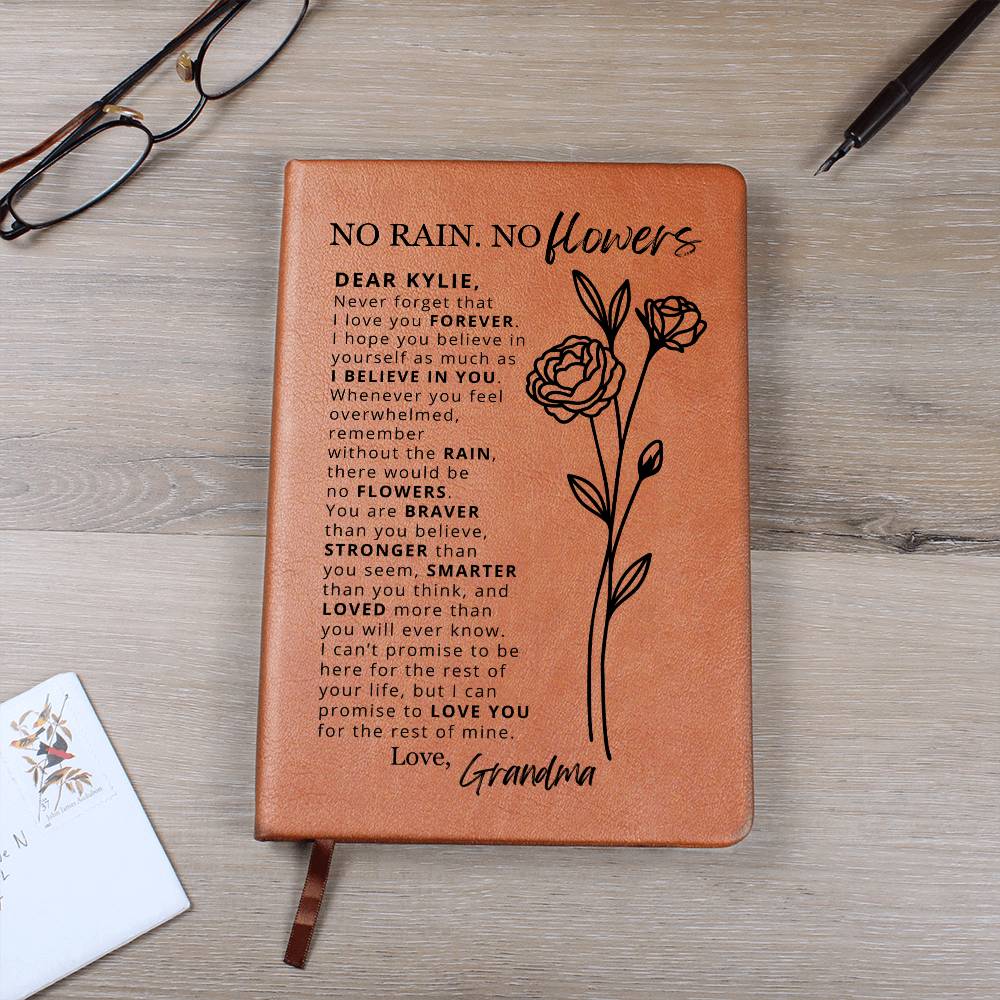 NO RAIN. NO flowers
DEAR KYLIE,
Never forget that
I love you FOREVER.
I hope you believe in
yourself as much as
I BELIEVE IN YOU.
Whenever you feel
overwhelmed,
remember
without the RAIN,
there would be
no FLOWERS.
You are BRAVER
than you believe,
STRONGER than
you seem, SMARTER
than you think, and
LOVED more than
you will ever know.
I can't promise to be
here for the rest of
your life, but I can
promise to LOVE YOU
for the rest of mine.
Love, Grandma
37
John James Audubon
N